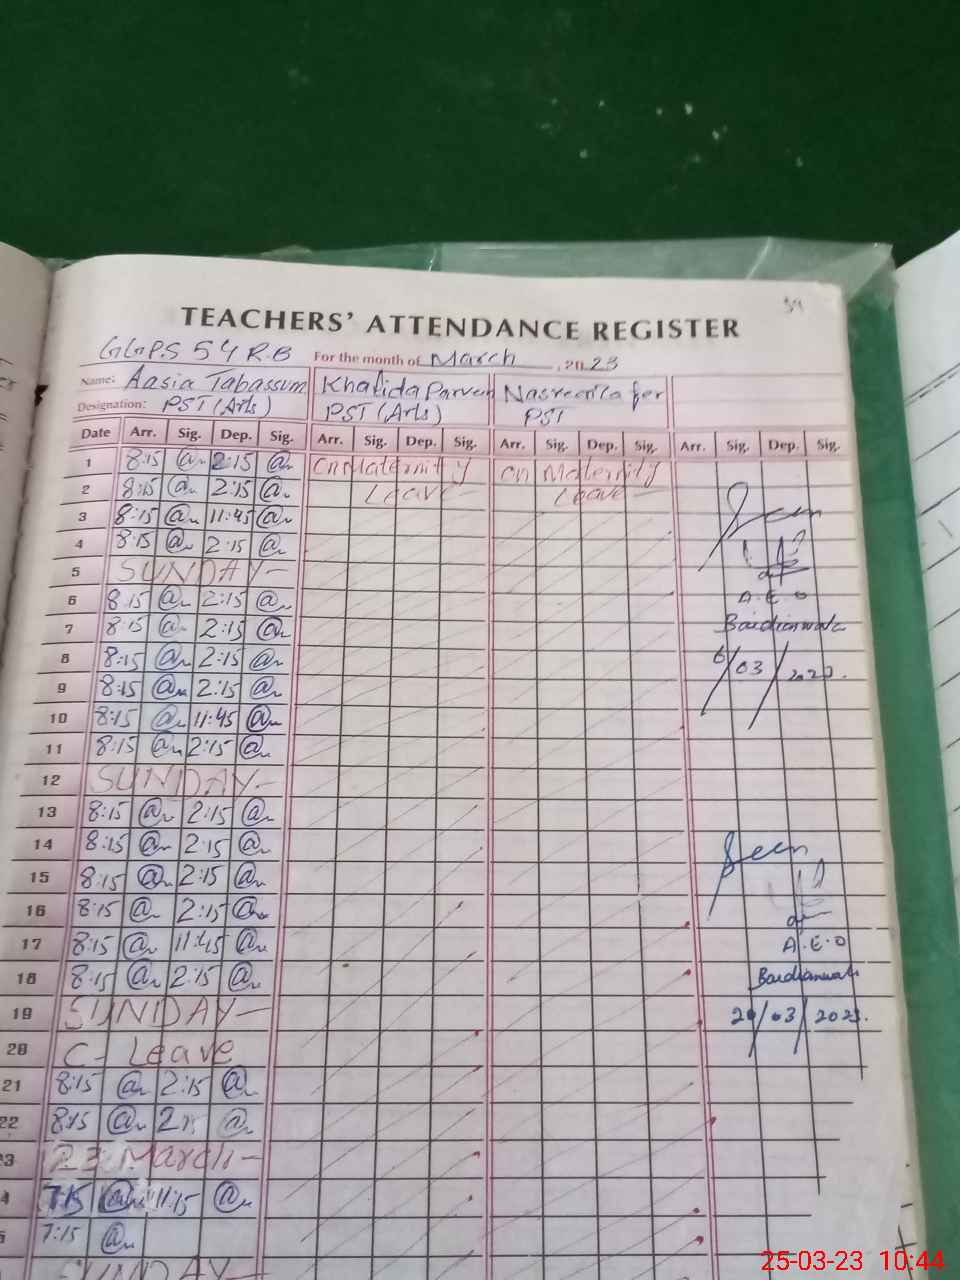 59
TEACHERS' ATTENDANCE REGISTER
GGPS 54 R.B For the month of March, 2023
Name: Aasia Tabassum Khalida Parveen
Designation: PST (Arts) PST (Arts) PST
Date Arr. Sig. Dep. Sig. Arr. Sig. Dep. Sig. Arr. Sig. Dep. Sig. Arr. Sig. Dep. Sig.
1 8:15 2:15 on Maternity on Maternity
2 8:15 2:15 Leave Leave
3 8:15 11:45 Seen
4 8:15 2:15
5 SUNDAY
6 8:15 2:15 A.E.O
7 8:15 2:15 Baidianwala
8 8:15 2:15 6/03/2023.
9 8:15 2:15
10 8:15 11:45
11 8:15 2:15
12 SUNDAY
13 8:15 2:15
14 8:15 2:15 Seen
15 8:15 2:15
16 8:15 2:15
17 8:15 11:45 A.E.O
18 8:15 2:15 Baidianwala
19 SUNDAY 20/03/2023.
20 C- Leave
21 8:15 2:15
22 8:15
3 23 March
4 7:15 11:15
7:15
SUNDAY
25-03-23 10:44